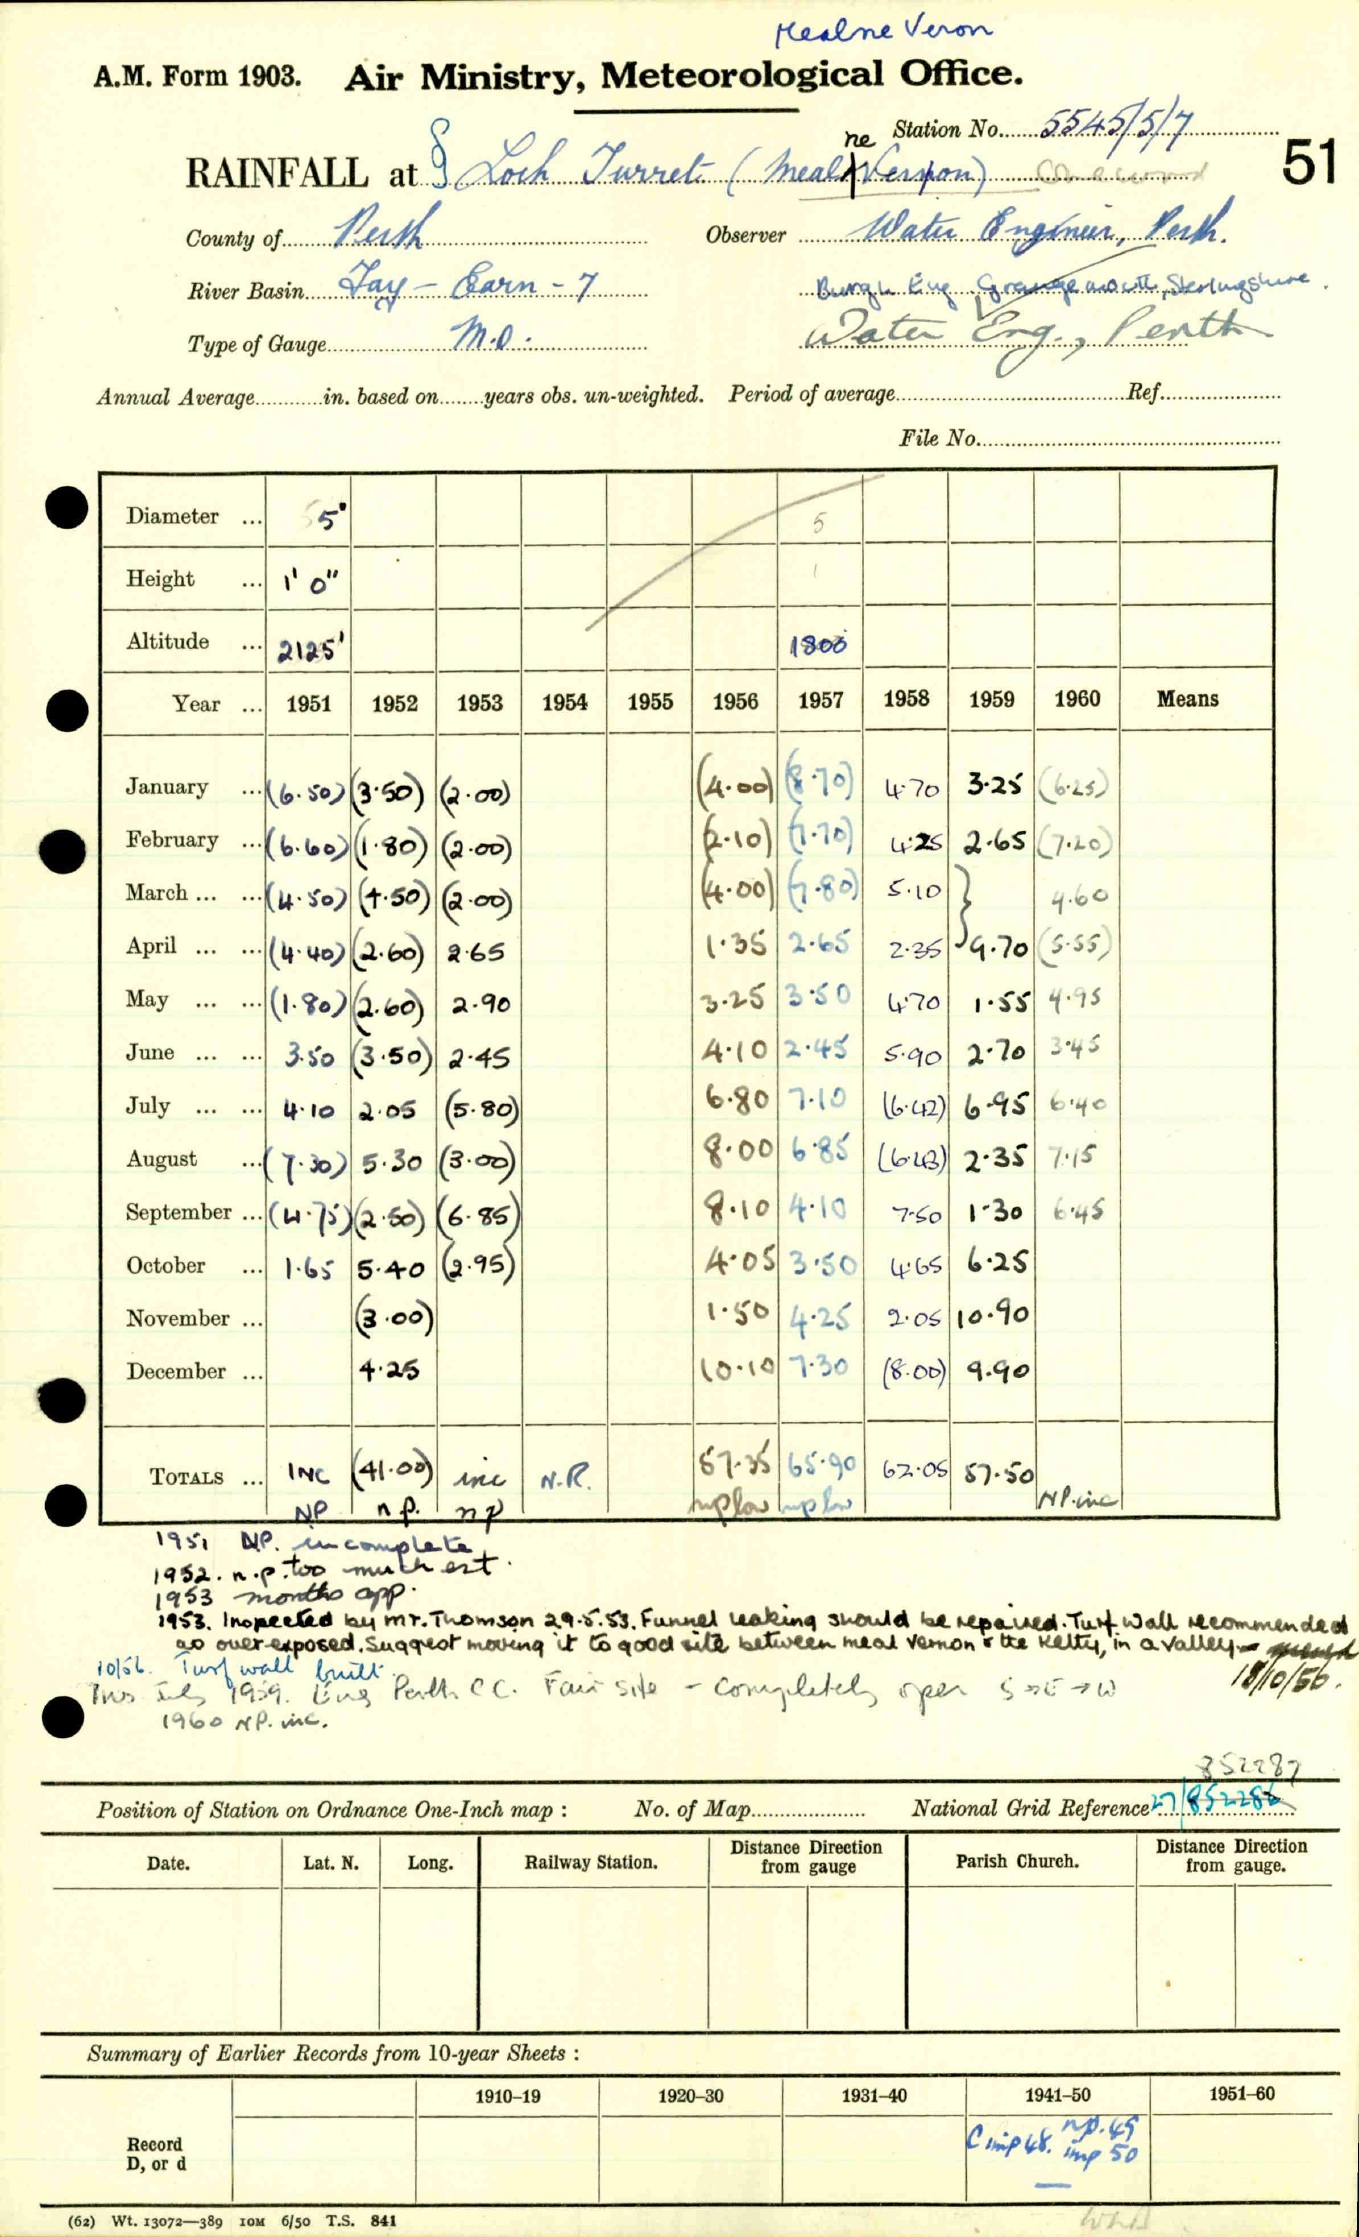 Mealne Veron
A.M. Form 1903. Air Ministry, Meteorological Office.
Station No. 5545/5/7
51
ne
RAINFALL at § Loch Turret (Meal Vernon)
County of Perth Observer Water Engineer, Perth.
River Basin Tay - Earn - 7 Burgh Eng Grangemouth, Sterlingshire.
Type of Gauge M.O. Water Eng., Perth
Annual Average in. based on years obs. un-weighted. Period of average Ref.
File No.
Diameter ... 5" 5
Height ... 1' 0" 1
Altitude ... 2125' 1800
Year ... 1951 1952 1953 1954 1955 1956 1957 1958 1959 1960 Means
January ... (6.50) (3.50) (2.00) (4.00) (8.70) 4.70 3.25 (6.25)
February ... (6.60) (1.80) (2.00) (2.10) (7.70) 4.25 2.65 (7.20)
March ... ... (4.50) (4.50) (2.00) (4.00) (7.80) 5.10 } 4.60
April ... ... (4.40) (2.60) 2.65 1.35 2.65 2.35 9.70 (5.55)
May ... ... (1.80) (2.60) 2.90 3.25 3.50 4.70 1.55 4.95
June ... ... 3.50 (3.50) 2.45 4.10 2.45 5.90 2.70 3.45
July ... ... 4.10 2.05 (5.80) 6.80 7.10 (6.42) 6.95 6.40
August ... (7.30) 5.30 (3.00) 8.00 6.85 (6.43) 2.35 7.15
September ... (4.75) (2.50) (6.85) 8.10 4.10 7.50 1.30 6.45
October ... 1.65 5.40 (2.95) 4.05 3.50 4.65 6.25
November ... (3.00) 1.50 4.25 2.05 10.90
December ... 4.25 10.10 7.30 (8.00) 9.90
TOTALS ... INC (41.00) inc N.R. 57.35 65.90 62.05 57.50
NP n.p. np np low np low NP.inc
1951 N.P. incomplete
1952. n.p. too much est.
1953 months app.
1953. Inspected by Mr. Thomson 29.5.53. Funnel leaking should be repaired. Turf wall recommended
as over-exposed. Suggest moving it to good site between meal vernon & the Kelty, in a valley -
10/56. Turf wall built. 18/10/56.
Ins July 1959. Eng Perth C C. Fair site - completely open S→E→W
1960 N.P. inc.
852287
Position of Station on Ordnance One-Inch map : No. of Map National Grid Reference 27/852286
Date. Lat. N. Long. Railway Station. Distance Direction from gauge Parish Church. Distance Direction from gauge.
Summary of Earlier Records from 10-year Sheets :
1910–19 1920–30 1931–40 1941–50 1951–60
Record
D, or d
C imp 48. np. 49
imp 50
(62) Wt. 13072—389 10M 6/50 T.S. 841